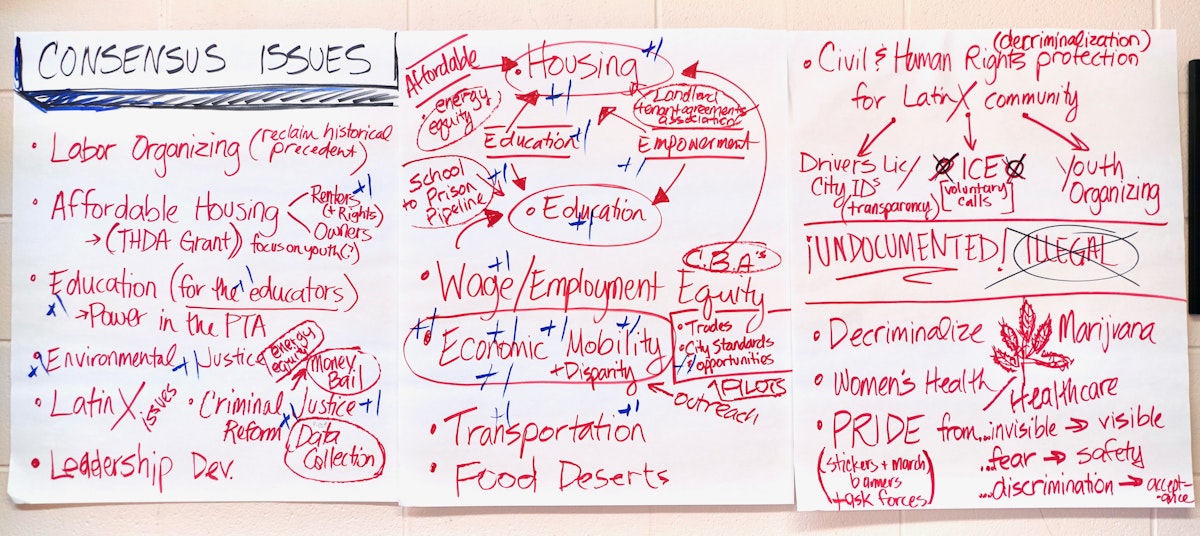 CONSENSUS ISSUES
• Labor Organizing (reclaim historical
precedent)
• Affordable Housing
Renters +1
(+ Rights)
Owners
→ (THDA Grant) focus on youth(?)
• Education (for the educators) +1
→ Power in the PTA
• Environmental Justice +1
energy
equity
Money
Bail
• LatinX issues
• Criminal Justice +1
Reform
Data
Collection
• Leadership Dev.
Affordable
• Housing +1
energy
equity
+1
Landlord
tenant agreements
associations
Education +1
Empowerment
School
to Prison
Pipeline
+1
+1
• Education
+1
C.B.A's
+1
• Wage/Employment Equity
+1 +1 +1 +1
• Economic Mobility
+ Disparity
+1
• Trades
• City Standards
• opportunities
+1
PILOTS
outreach
+1 +1
• Transportation
• Food Deserts
(decriminalization)
• Civil & Human Rights protection
for LatinX community
Drivers Lic/
City IDs
(transparency)
ICE
[voluntary
calls]
Youth
Organizing
¡UNDOCUMENTED! ILLEGAL
• Decriminalize Marijvana
• Women's Health / Healthcare
• PRIDE from...invisible → visible
(stickers + march
banners
+ task forces)
...fear → safety
...discrimination → accept-
-ance